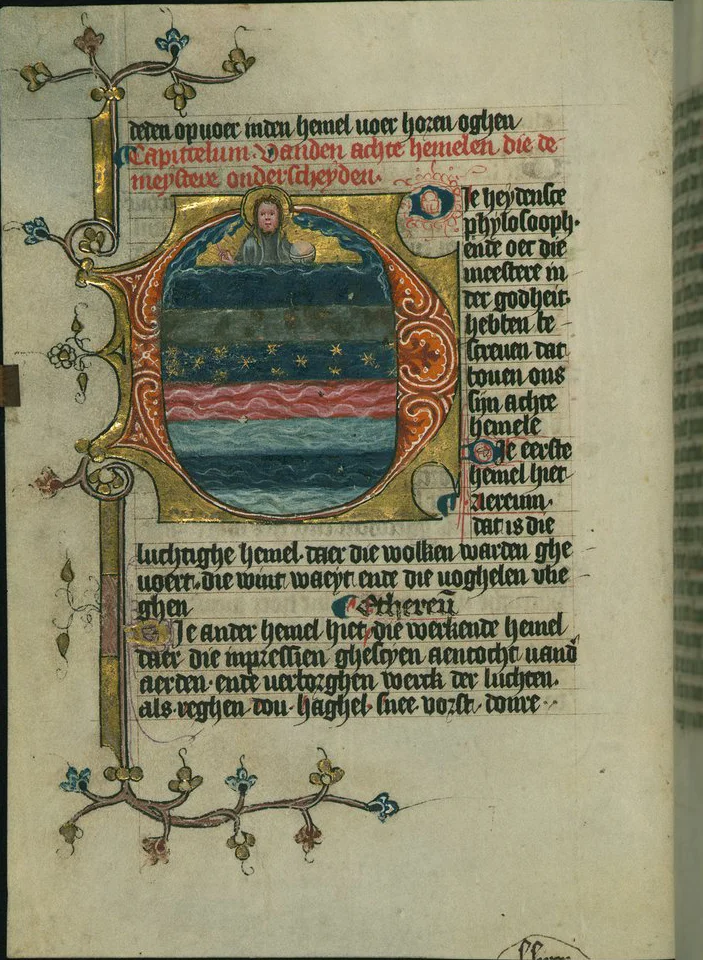 deden op voer inden hemel voer horen oghen
Capittelum. Vanden achte hemelen die de
meystere onderscheyden.
Die heydensce
phylosooph.
ende oec die
meestere in
der godheit.
hebben be
screven dat
boven ons
sijn achte
hemele
Die eerste
hemel hiet
Aereum.
dat is die
luchtighe hemel. daer die wolken warden ghe
voert. die wint waeyt ende die voghelen vlie
ghen
Ethereū
Die ander hemel hiet die werkende hemel
daer die inpressien ghescyen aencocht vand
aerden. ende verborghen werck der luchten.
als reghen dou. haghel. snee. vorst. donre